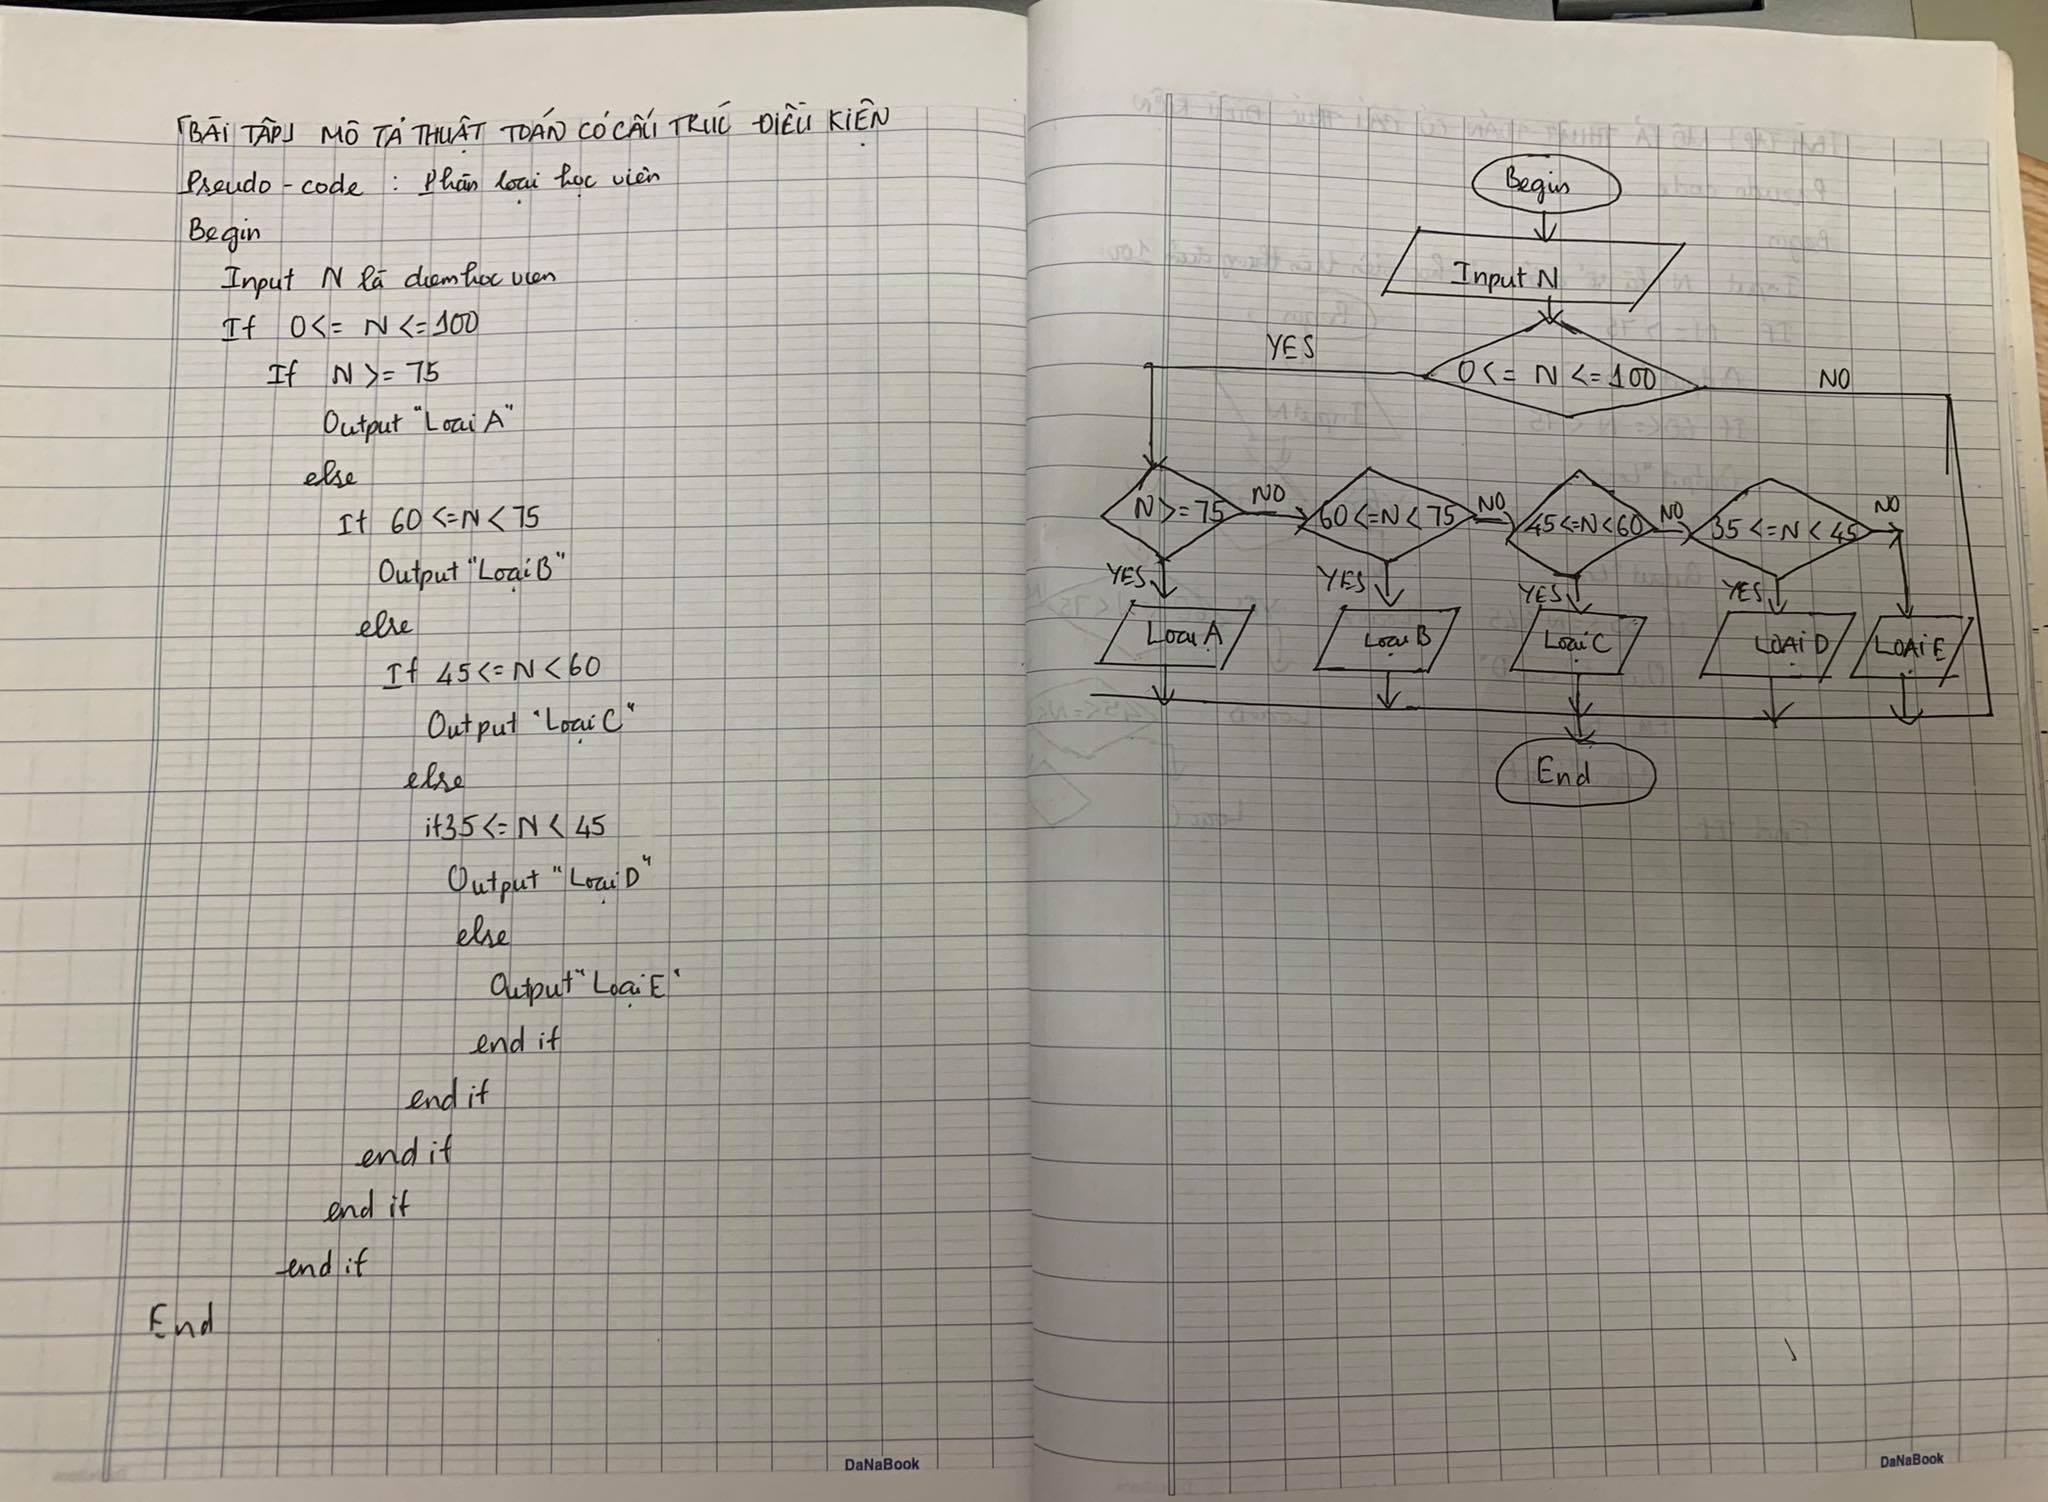 [BÀI TẬP] MÔ TẢ THUẬT TOÁN CÓ CẤU TRÚC ĐIỀU KIỆN
Pseudo-code : Phân loại học viên
Begin
Input N là diem hoc vien
If 0<= N <=100
If N >= 75
Output "Loại A"
else
If 60 <=N < 75
Output "Loại B"
else
If 45 <= N < 60
Output "Loại C"
else
if 35 <= N < 45
Output "Loại D"
else
Output "Loại E"
end if
end if
end if
end if
end if
End
DaNaBook
Begin
Input N
YES
0<= N <=100
NO
N >= 75
NO
60 <=N < 75
NO
45 <=N <60
NO
35 <=N < 45
NO
YES
YES
YES
YES
Loại A
Loại B
Loại C
LOẠI D
LOẠI E
End
DaNaBook